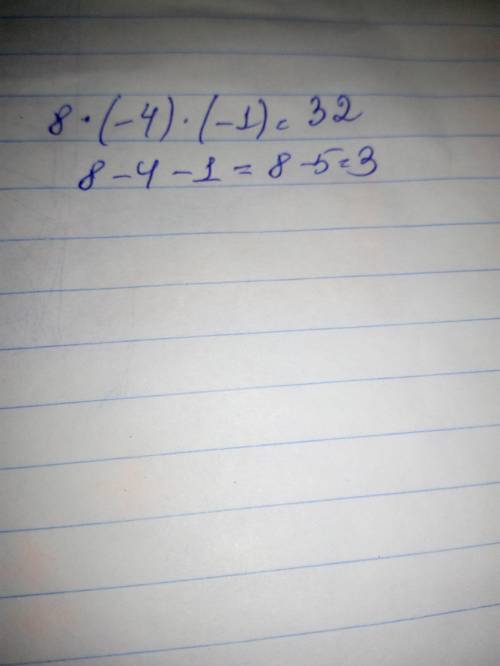 8 · (-4) · (-1) = 32
8 - 4 - 1 = 8 - 5 = 3